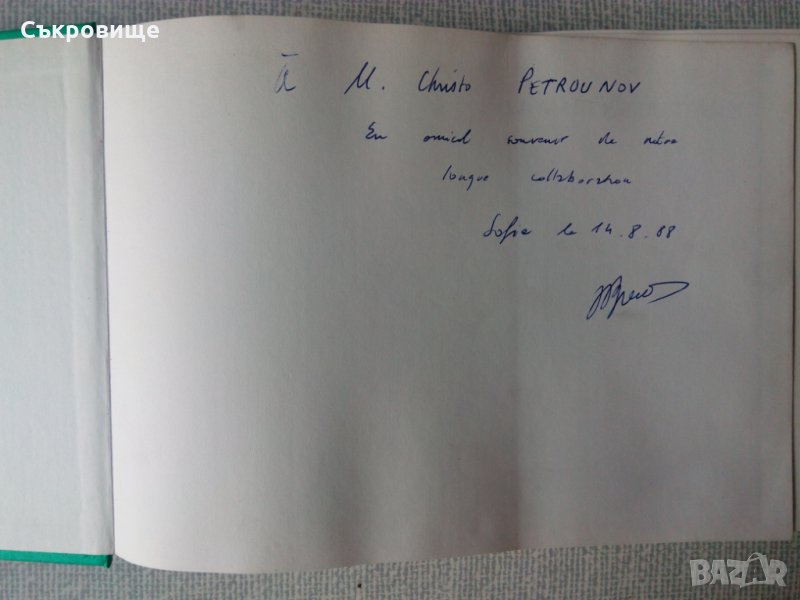 Съкровище
à M. Christo PETROUNOV
En amical souvenir de notre
longue collaboration
Sofia le 14.8.88
BAZAR